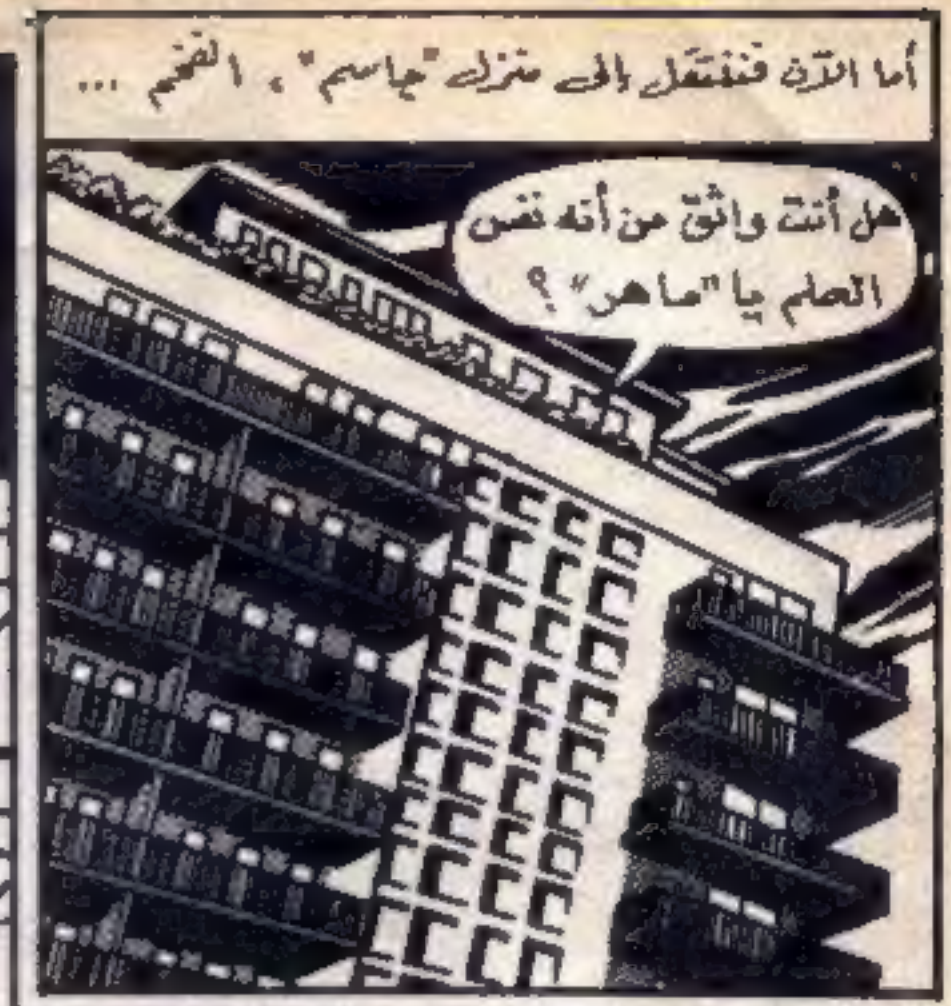 أما الآن فننتقل إلى منزل "جاسم"، الفخم ...
هل أنت واثق من أنه نفس
الحلم يا "ماهر" ؟